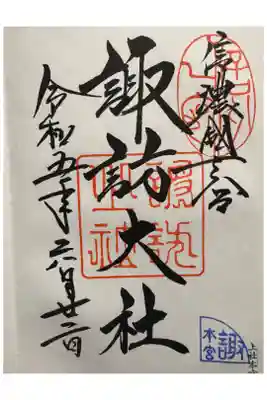 信濃國一之宮
諏訪大社
令和五年六月廿二日
諏訪大社
本宮
諏
上社本宮